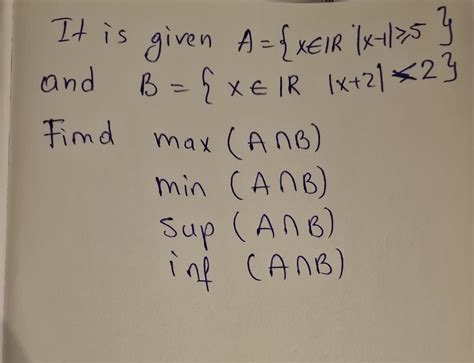 It is given A={x∈IR |x-1|≥5}
and B = { x ∈ IR |x+2| < 2}
Find max (A∩B)
min (A∩B)
sup (A∩B)
inf (A∩B)